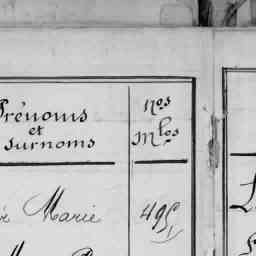 Prénoms
et
surnoms
Nos
Mles
Marie
495